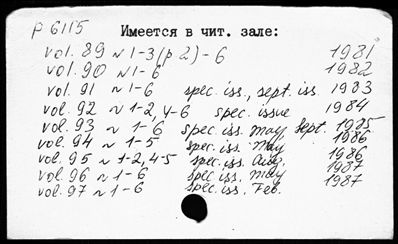 р 6115
Имеется в чит. зале:
vol. 89 N 1-3 (p 2) - 6 1981
vol. 90 N 1-6 1982
vol. 91 N 1-6 spec. iss., sept. iss 1983
vol. 92 N 1-2, 4-6 spec. issue 1984
vol. 93 N 1-6 spec. iss. May, Sept. 1985
vol. 94 N 1-5 spec. iss. May 1986
vol. 95 N 1-2, 4-5 spec. iss. Aug. 1986
vol. 96 N 1-6 spec. iss. May 1987
vol. 97 N 1-6 spec. iss. Feb. 1987